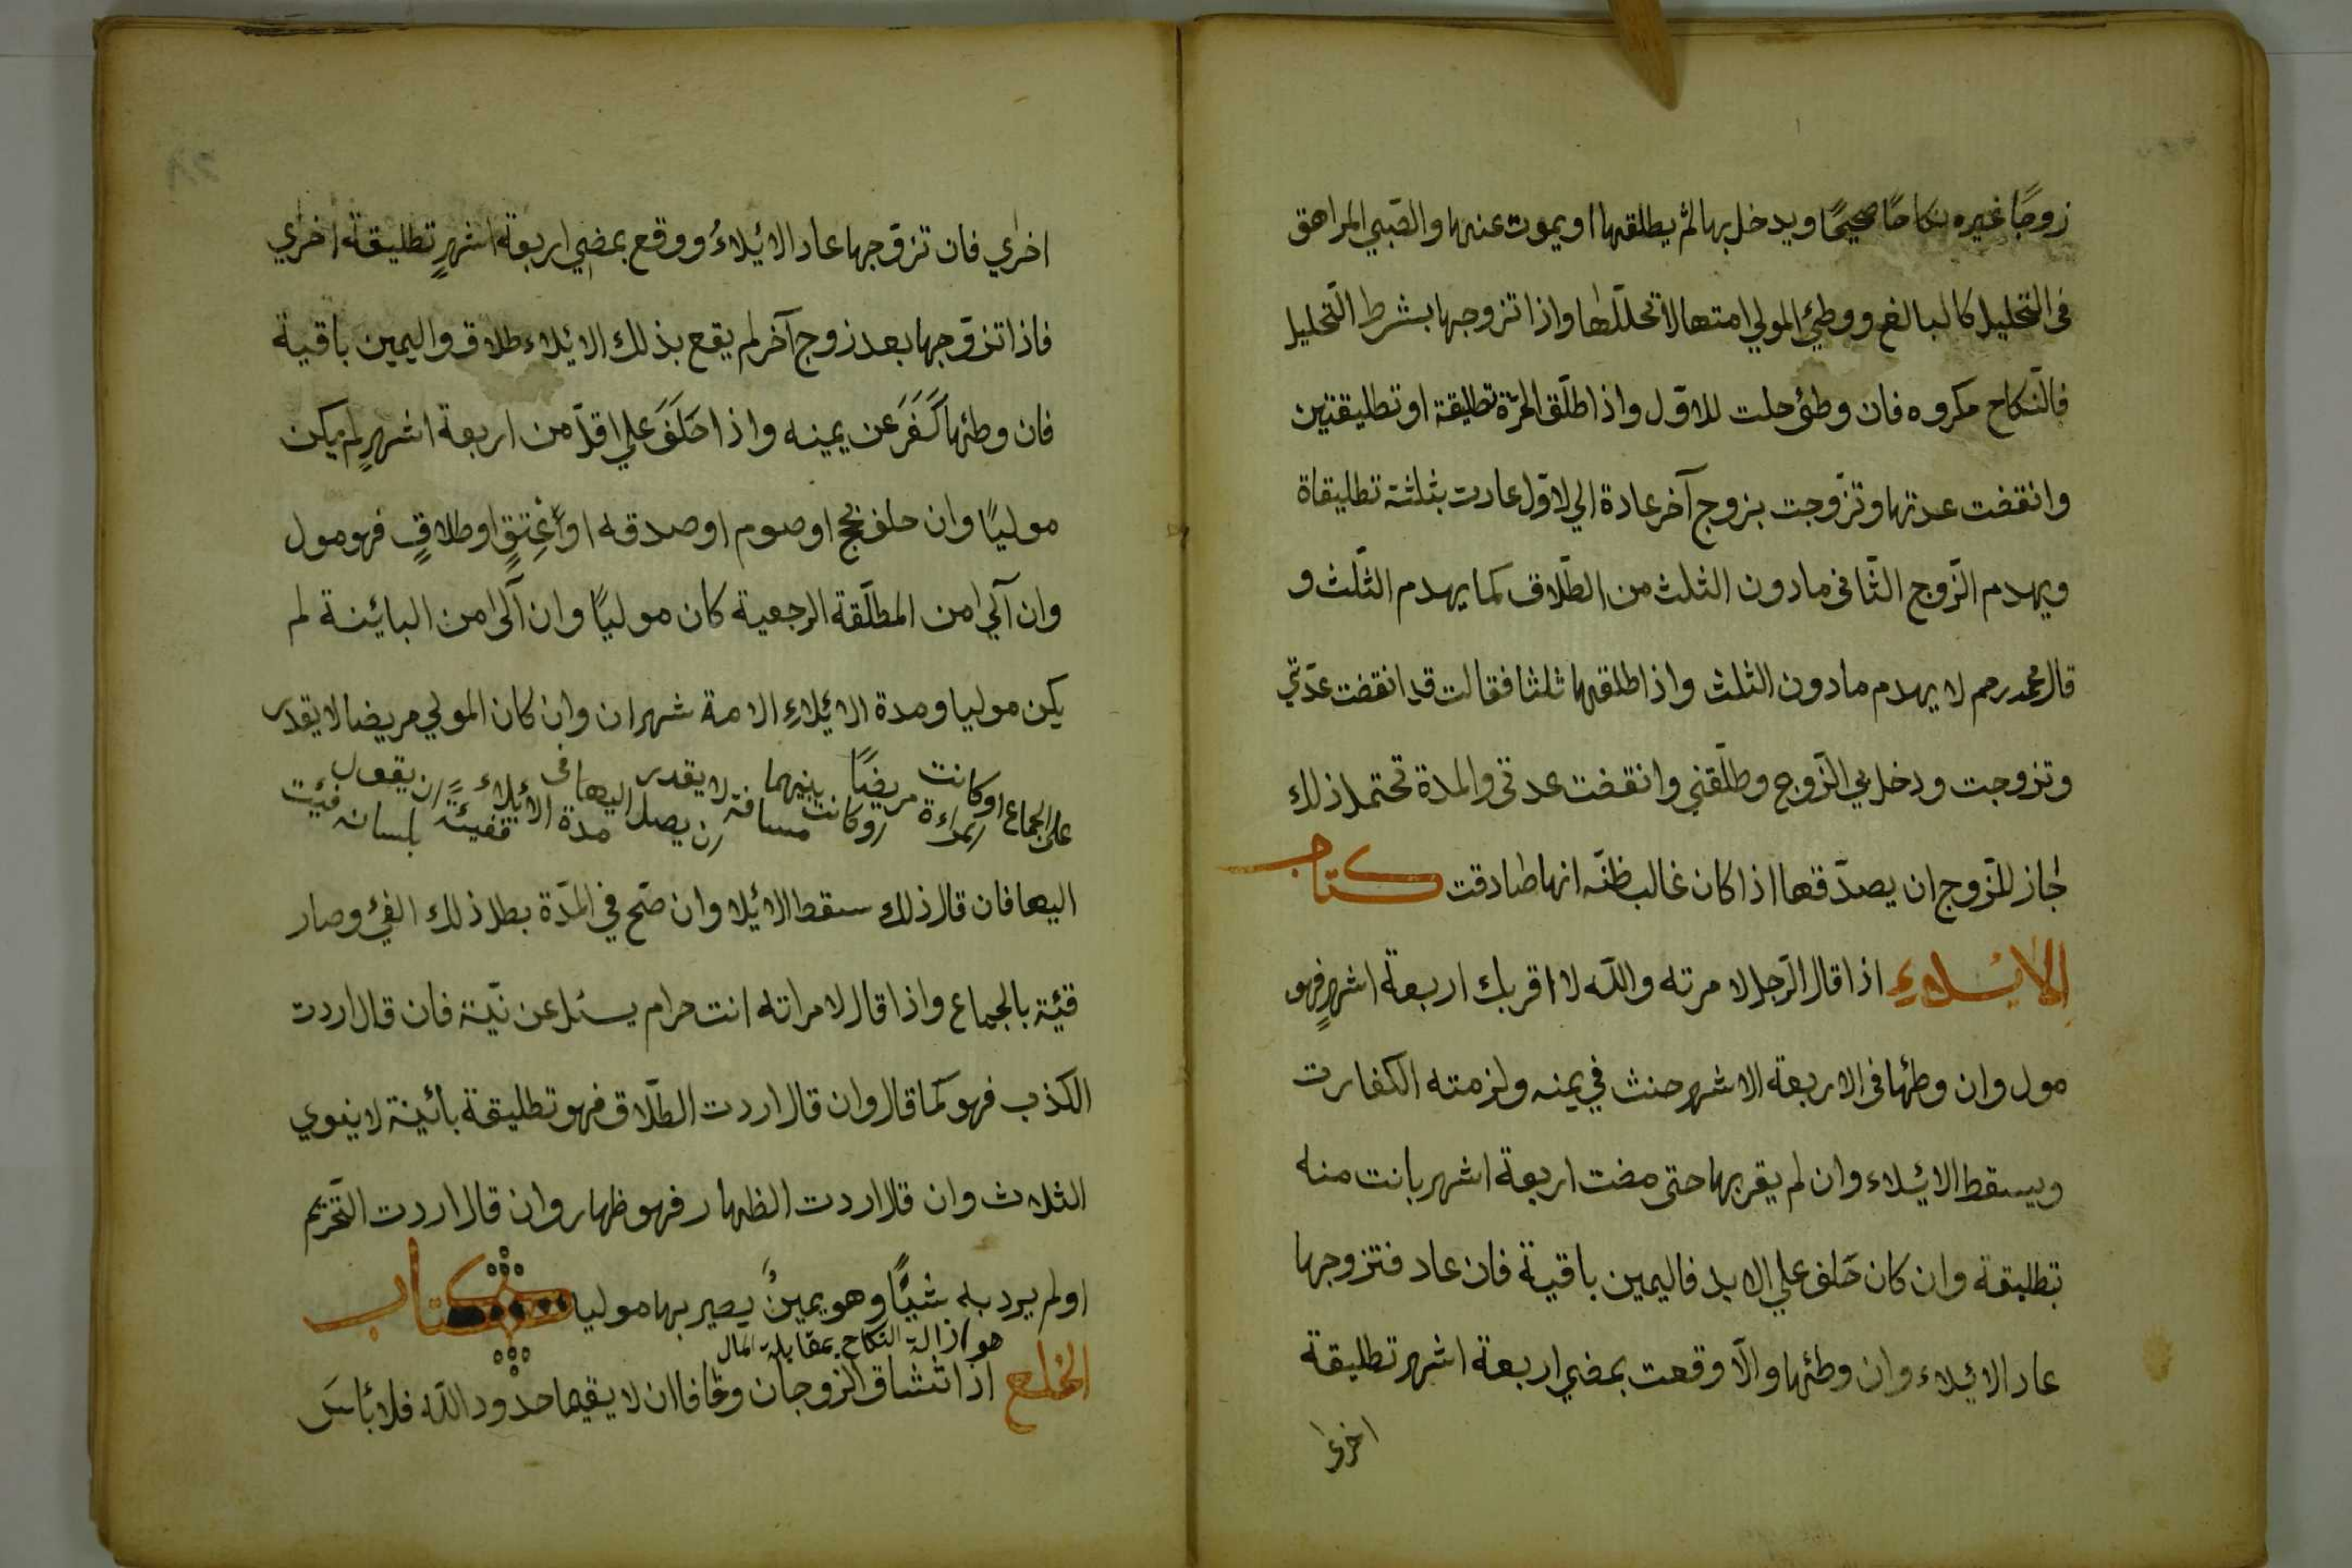 زوجًا غيره نكاحًا صحيحًا ويدخل بها ثم يطلقها او يموت عنها والصّبي المراهق
فى التحليل كالبالغ ووطئ المولي امتها لا تحللّها واذا تزوجها بشرط التّحليل
فالنّكاح مكروه فان وطئ حلت للاوّل واذا طلّق الحرّة تطليقة او تطليقتين
وانقضت عدتها وتزّوجت بزوج آخر عادة الي لاوّل عادت بثلثة تطليقاة
ويهدم الزّوج الثّانى مادون الثلث من الطّلاق كما يهدم الثّلث و
قال محمد رحم لا يهدم مادون الثلث واذا طلقها ثلثا فقالت قد انقضت عدّتي
وتزوجت ودخل بي الزّوج وطلّقني وانقضت عدتى والمدة تحتمل ذلك
جاز للزّوج ان يصدّقها اذا كان غالب ظنّه انها صادقت كتاب
الايلاء اذا قال الرّجل لا مرته واللّه لا اقربك اربعة اشهرٍ فهو
مول وان وطئها فى الاربعة الاشهر حنث في يمنه ولزمته الكفارت
ويسقط الايئلاء وان لم يقربها حتى مضت اربعة اشهر بانت منه
بتطليقة وان كان حَلف علي الابد فاليمين باقية فان عاد فتزوجها
عاد الايئلاء وان وطئها والّا وقعت بمضي اربعة اشهر تطليقة
اخرى
اخرٰي فان تزوّجها عاد الايئلاءُ ووقع بمضي اربعة اشهرٍ تطليقة اخري
فاذا تزوّجها بعد زوج آخر لم يقع بذلك الايئلاء طلاق واليمين باقية
فان وطئها كَفَرَ عن يمينه واذا حَلَفَ علي اقلّ من اربعة اشهرٍ لم يكن
موليًا وان حلف بحج او صوم او صدقه او عِتقٍ او طلاقٍ فهو مول
وان آلي امن المطلّقة الرجعية كان موليًا وان آلى امن البائينة لم
يكن موليا ومدة الايئلاءِ الامة شهران وان كان المولي مريضا لا يقدر
على الجماع او كانت المراءة مريضًا او كانت بينهما مسافة لا يقدر ان يصل اليها فى مدة الايئلاء ففيئة ان يقول بلسانه فيئت
اليها فان قال ذلك سقط الايئلا وان صّح في المّدة بطل ذلك الفئ وصار
فيئة بالجماع واذا قال لا مراته انت حرام يسئل عن نيّة فان قال اردت
الكذب فهو كما قال وان قال اردت الطّلاق فهو تطليقة بائينة لا ينوي
الثلاث وان قلا اردت الظهار فهو ظهار وان قال اردت التّحريم
او لم يرد به شيًّا وهو يمينٌ يصير بها موليا كتاب
هو ازالة النكاح بمقابلة المال
الخلع اذا تشاق الزوجان وخافا ان لا يقيما حدود اللّه فلا بئاسَ